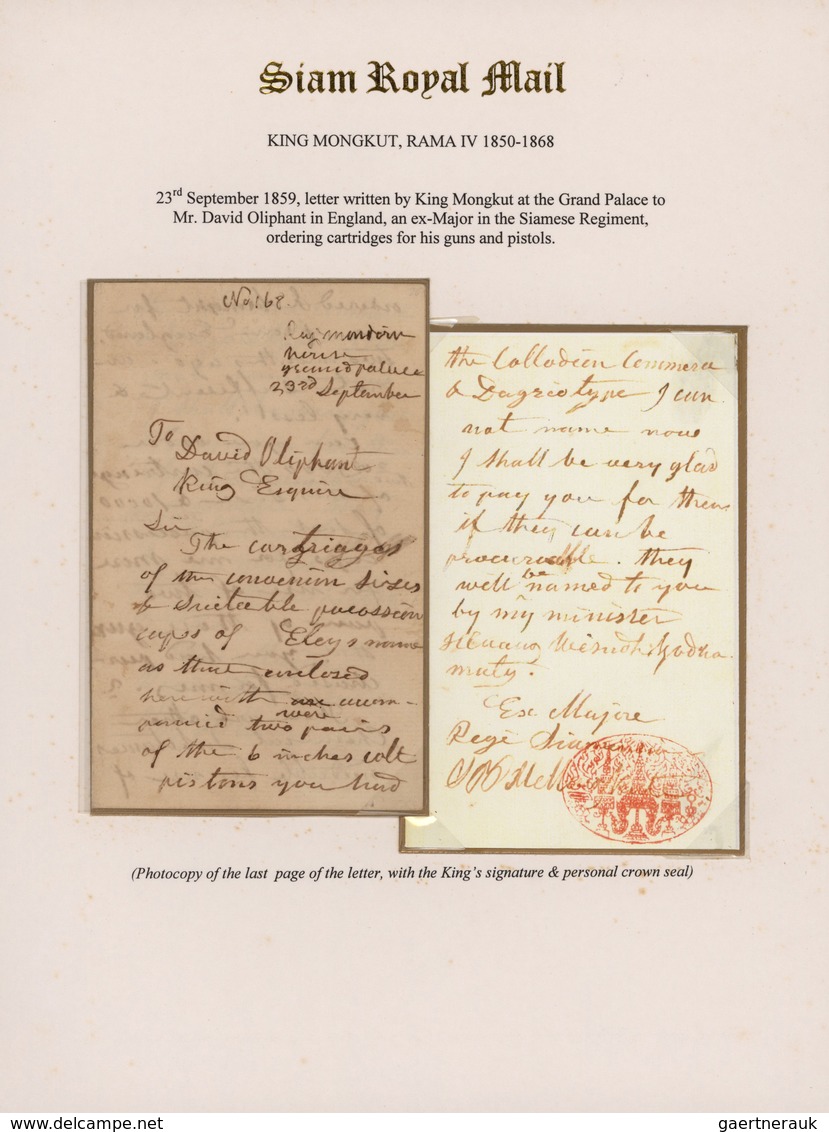 Siam Royal Mail
KING MONGKUT, RAMA IV 1850-1868
23rd September 1859, letter written by King Mongkut at the Grand Palace to
Mr. David Oliphant in England, an ex-Major in the Siamese Regiment,
ordering cartridges for his guns and pistols.
No 168
23rd September
To
David Oliphant
King Esquire
Sir
The
of the sizes
&
caps of Eleys name
as that enclosed
here with
were
two pairs
of the 6 inches colt
pistons you had
the Collodion Commera
& Dagriotype I can
not name now
I shall be very glad
to pay you for them
if they can be
. they
well be named to you
by my minister
Ex Majore
Regi
(Photocopy of the last page of the letter, with the King's signature & personal crown seal)
www.delcampe.net
gaertnerauk